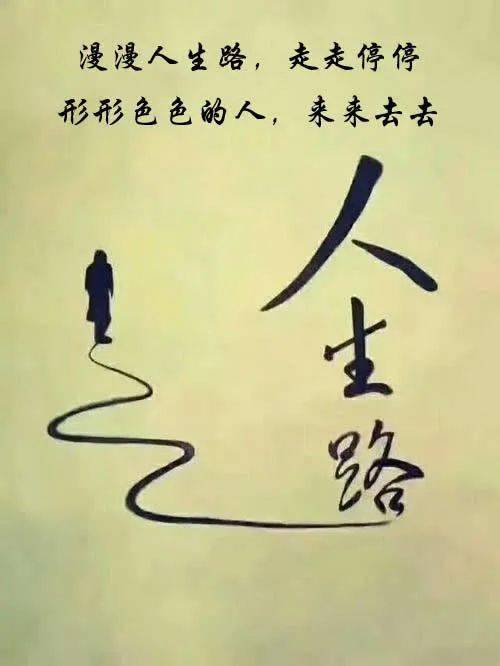 漫漫人生路，走走停停
形形色色的人，来来去去
人生路